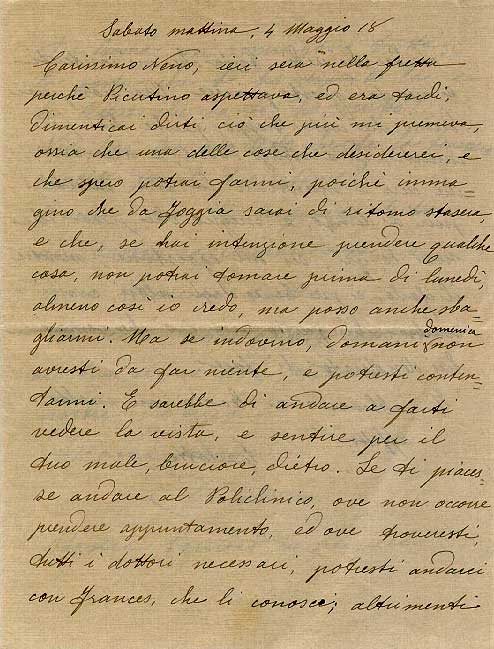 Sabato mattina, 4 Maggio 18
Carissimo Neno, ieri sera nella fretta
perchè Picutino aspettava, ed era tardi,
dimenticai dirti ciò che più mi premeva,
ossia che una delle cose che desidererei, e
che spero potrai farmi, poichè imma-
gino che da Foggia sarai di ritorno stasera
e che, se hai intenzione prendere qualche
cosa, non potrai tornare prima di lunedì,
almeno così io credo, ma posso anche sba-
gliarmi. Ma se indovino, domani domenica non
avresti da far niente, e potresti conten-
tarmi. E sarebbe di andare a farti
vedere la vista, e sentire per il
tuo male, bruciore, dietro. Se ti piaces-
se andare al Policlinico, ove non occorre
prendere appuntamento, ed ove troveresti,
tutti i dottori necessari, potresti andarci
con Frances, che li conosce; altrimenti